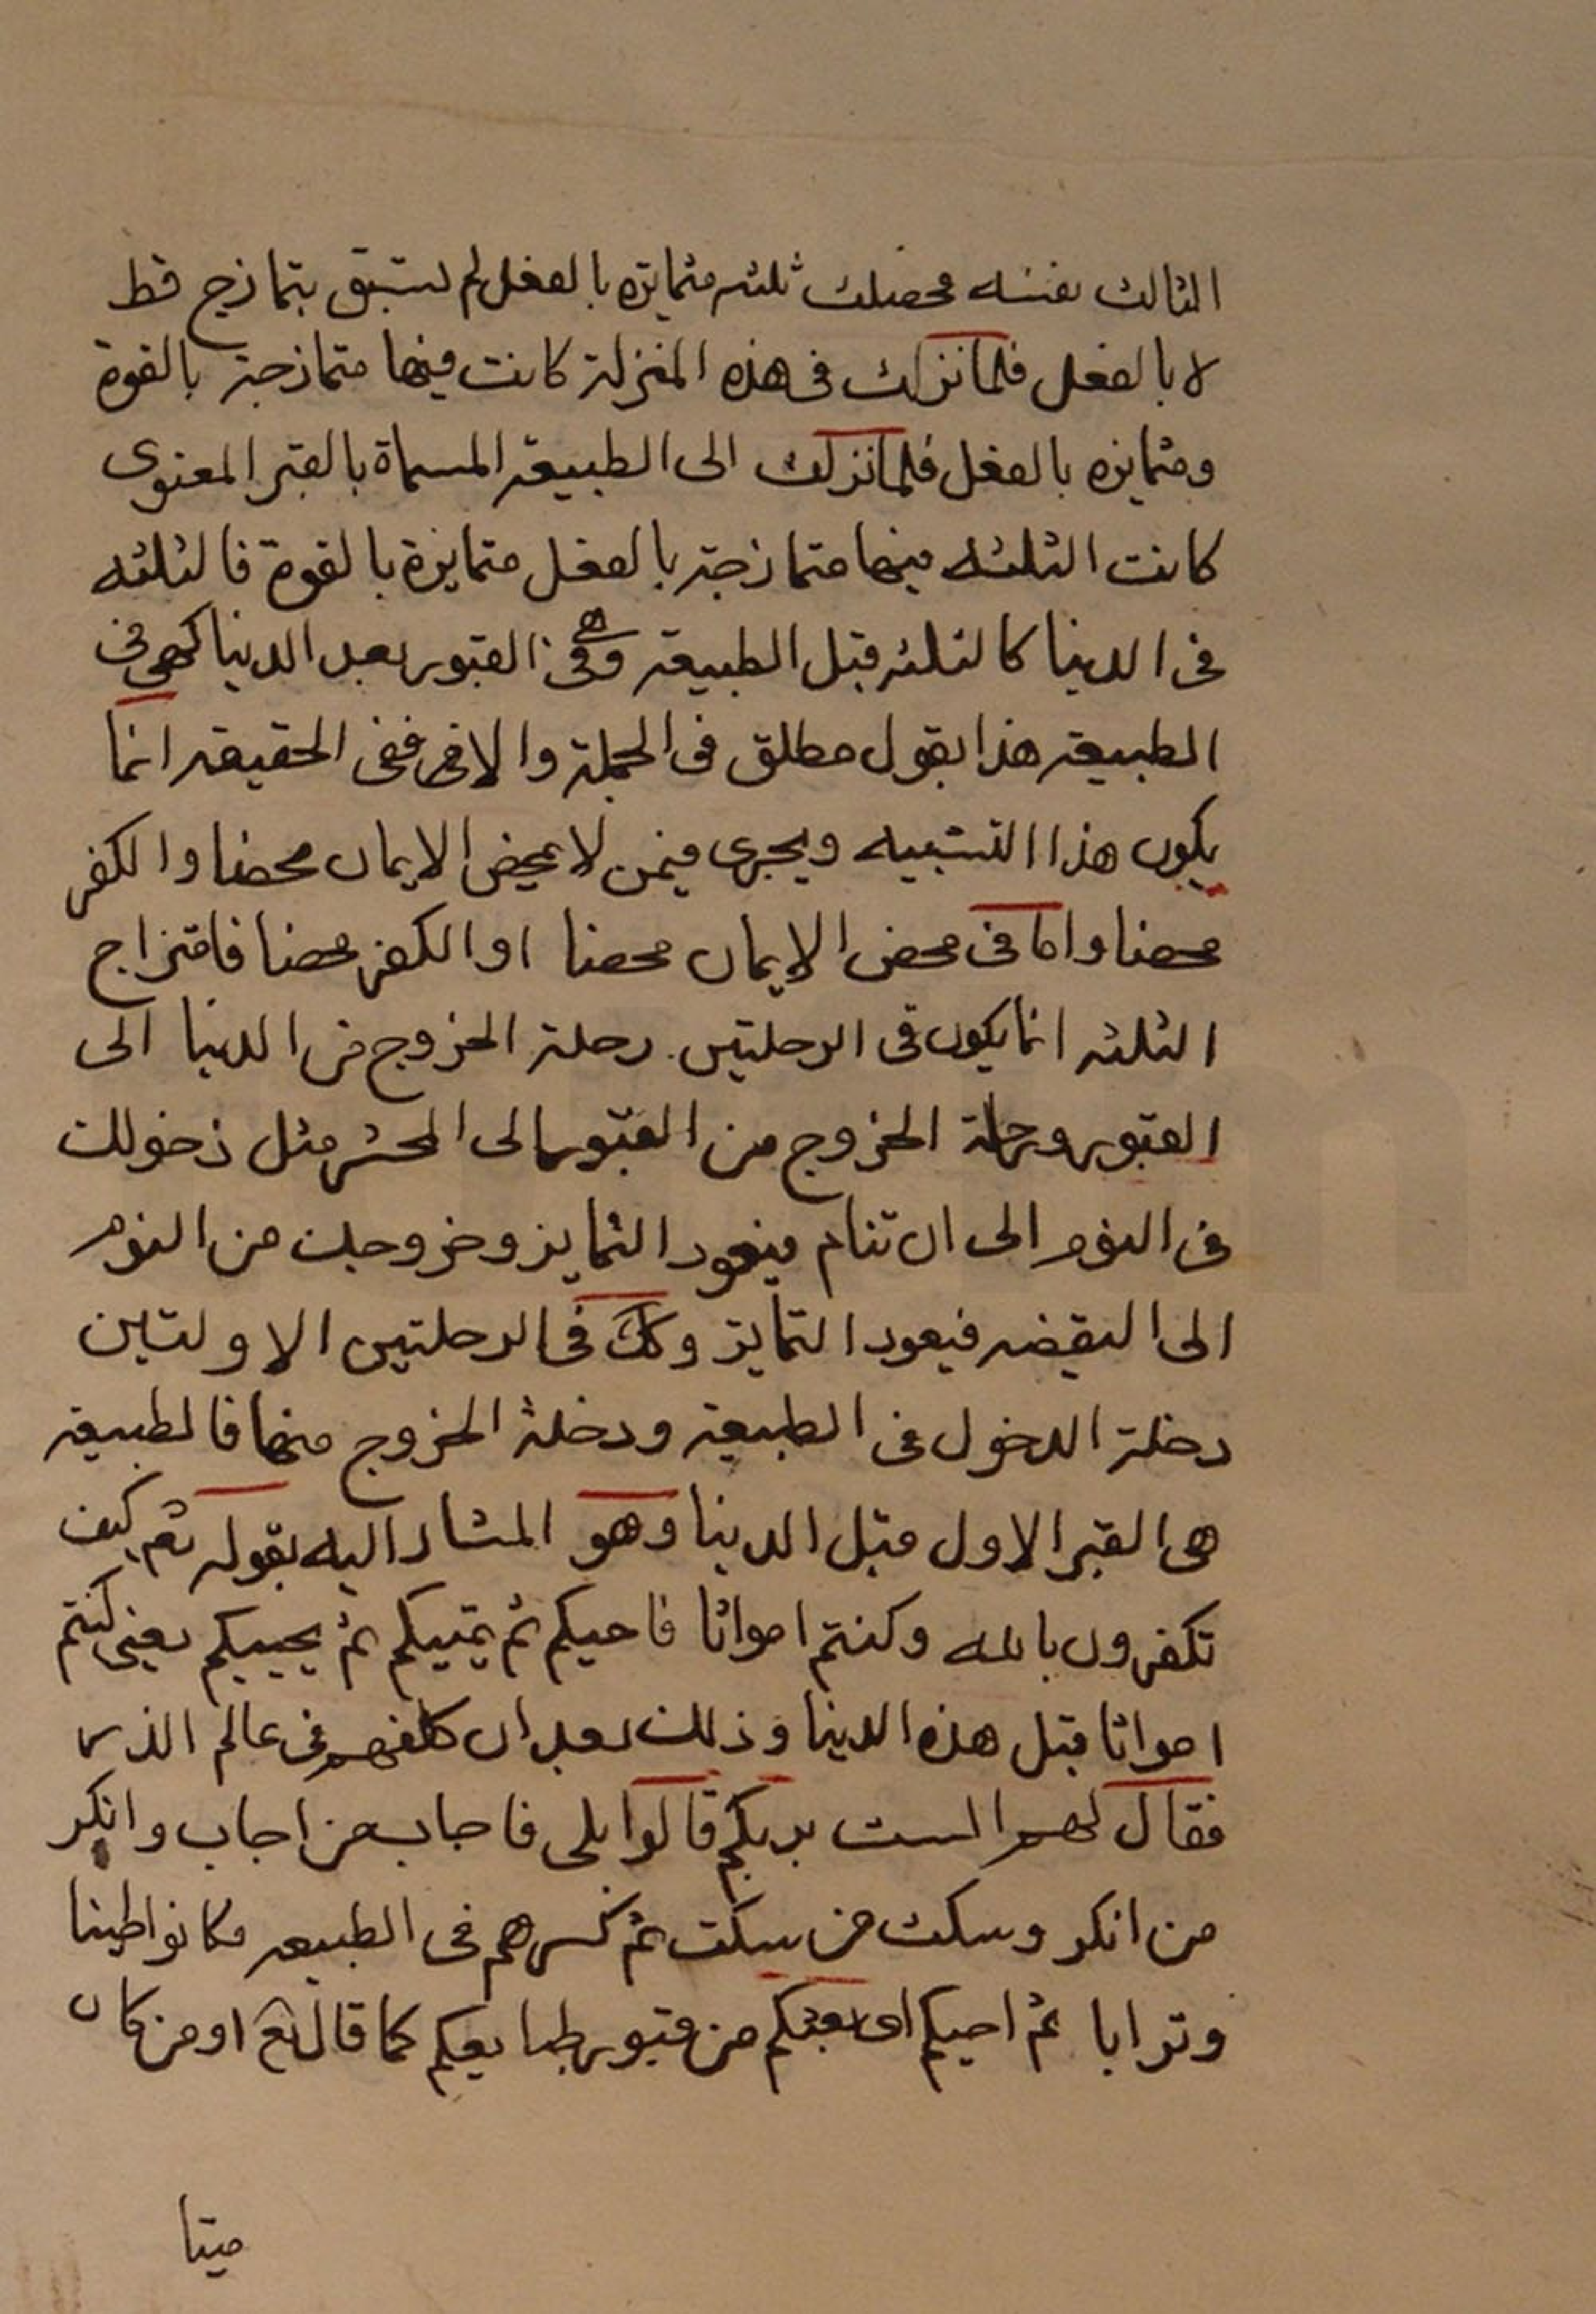 الثالث بفنسه فحصلت ثلثه متمايزه بالفعل لم تسبق بتمازج قط
لا بالفعل فلما نزلت فى هذه المنزلة كانت فيها متمازجة بالقوة
ومتمايزه بالفعل فلما نزلت الى الطبيعة المسماة بالقبر المعنوى
كانت الثلثه فيها متمازجة بالفعل متمايزة بالقوة فالثلثه
فى الدنيا كالثلثه قبل الطبيعة وهى فى القبور بعد الدنيا كهى فى
الطبيعة هذا بقول مطلق فى الجملة والا فهى ففى الحقيقه انما
يكون هذا التشبيه ويجرى فيمن لا يمحض الايمان محضا والكفر
محضا واما فى محض الايمان محضا او الكفر محضا فامتزاج
الثلثه انما يكون فى الرحلتين رحلة الخروج من الدنيا الى
القبور ورحلة الخروج من القبور الى المحشر مثل دخولك
فى النوم الى ان تنام فيعود التمايز وخروجك من النوم
الى اليقضه فيعود التمايز وكك فى الرحلتين الاولتين
رحلة الدخول فى الطبيعة ورحلة الخروج منها فالطبيعة
هى القبر الاول قبل الدنيا وهو المشار اليه بقوله تعم كيف
تكفرون بالله وكنتم امواتا فاحيكم ثم يميتكم ثم يحييكم يعنى كنتم
امواتا قبل هذه الدنيا وذلك بعد ان كلفهم فى عالم الذر
فقال لهم الست بربكم قالوا بلى فاجاب من اجاب وانكر
من انكر وسكت من سكت ثم كسرهم فى الطبيعه فكانوا طينا
وترابا ثم احيكم اى بعثكم من قبور طبايعكم كما قال تع اومن كان
ميتا